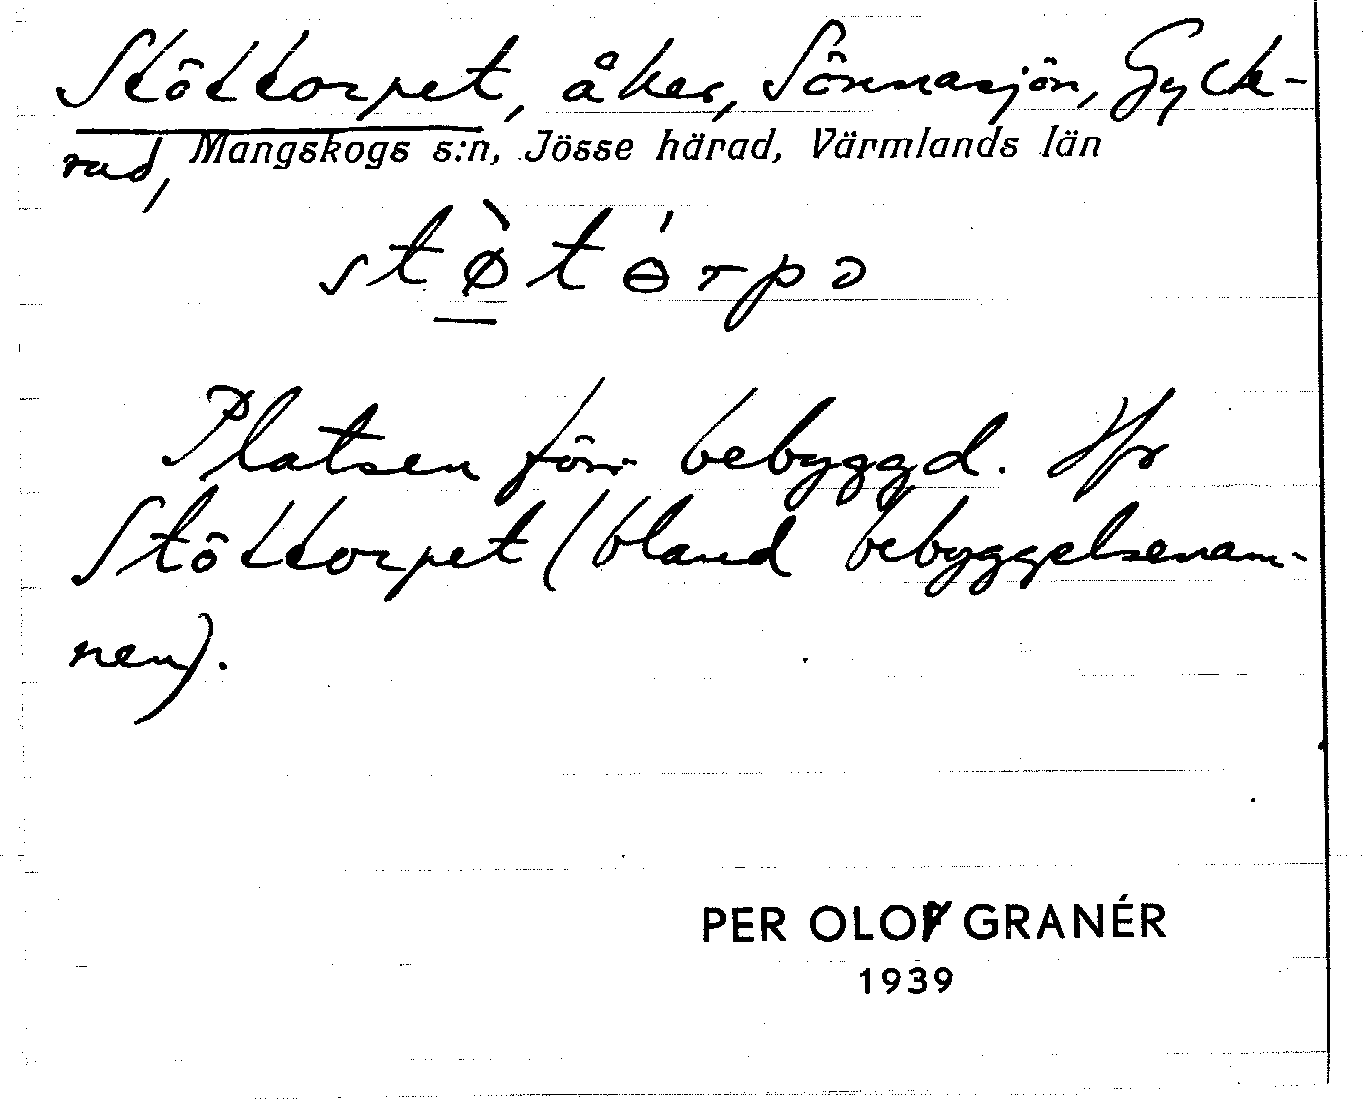 Stöttorpet, åker, Sönnasjön, Gyck-
rud, Mangskogs s:n, Jösse härad, Värmlands län
stø̀tɵ́rpə
Platsen förr bebyggd. Jfr
Stöttorpet (bland bebyggelsenam-
nen).
PER OLOF GRANÉR
1939